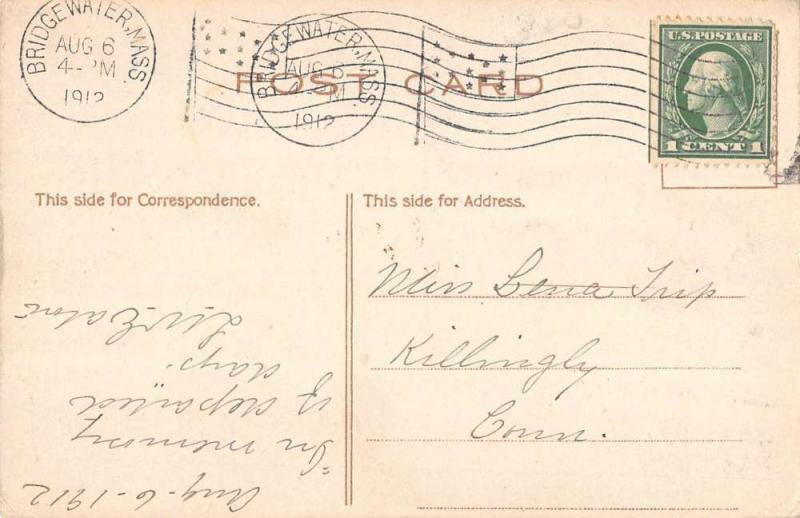 BRIDGEWATER, MASS.
AUG 6
4- PM
1912
BRIDGEWATER, MASS.
AUG 6
M
1912
POST CARD
U.S. POSTAGE
1 CENT 1
This side for Correspondence.
This side for Address.
Miss Lena Trip
Killingly
Conn.
Aug-6-1912
"In memory
of departed
days."
L.W. Eaton